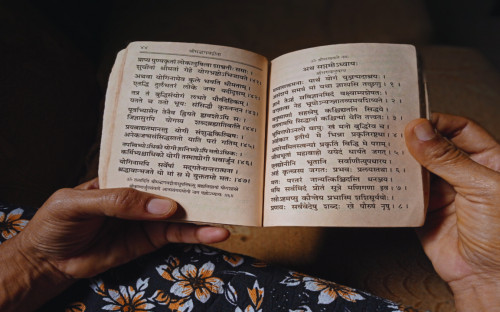 प्राप्य पुण्यकृतां लोकानुषित्वा शाश्वतीः समाः ।
शुचीनां श्रीमतां गेहे योगभ्रष्टोऽभिजायते ॥४१॥
अथवा योगिनामेव कुले भवति धीमताम् ।
एतद्धि दुर्लभतरं लोके जन्म यदीदृशम् ॥४२॥
तत्र तं बुद्धिसंयोगं लभते पौर्वदेहिकम् ।
यतते च ततो भूयः संसिद्धौ कुरुनन्दन ॥४३॥
पूर्वाभ्यासेन तेनैव ह्रियते ह्यवशोऽपि सः ।
जिज्ञासुरपि योगस्य शब्दब्रह्मातिवर्तते ॥४४॥
प्रयत्नाद्यतमानस्तु योगी संशुद्धकिल्बिषः ।
अनेकजन्मसंसिद्धस्ततो याति परां गतिम् ॥४५॥
तपस्विभ्योऽधिको योगी ज्ञानिभ्योऽपि मतोऽधिकः ।
कर्मिभ्यश्चाधिको योगी तस्माद्योगी भवार्जुन ॥४६॥
योगिनामपि सर्वेषां मद्गतेनान्तरात्मना ।
श्रद्धावान्भजते यो मां स मे युक्ततमो मतः ॥४७॥
अथ सप्तमोऽध्यायः
श्रीभगवानुवाच
मय्यासक्तमनाः पार्थ योगं युञ्जन्मदाश्रयः ।
असंशयं समग्रं मां यथा ज्ञास्यसि तच्छृणु ॥१॥
ज्ञानं तेऽहं सविज्ञानमिदं वक्ष्याम्यशेषतः ।
यज्ज्ञात्वा नेह भूयोऽन्यज्ज्ञातव्यमवशिष्यते ॥२॥
मनुष्याणां सहस्रेषु कश्चिद्यतति सिद्धये ।
यततामपि सिद्धानां कश्चिन्मां वेत्ति तत्त्वतः ॥३॥
भूमिरापोऽनलो वायुः खं मनो बुद्धिरेव च ।
अहंकार इतीयं मे भिन्ना प्रकृतिरष्टधा ॥४॥
अपरेयमितस्त्वन्यां प्रकृतिं विद्धि मे पराम् ।
जीवभूतां महाबाहो ययेदं धार्यते जगत् ॥५॥
एतद्योनीनि भूतानि सर्वाणीत्युपधारय ।
अहं कृत्स्नस्य जगतः प्रभवः प्रलयस्तथा ॥६॥
मत्तः परतरं नान्यत्किञ्चिदस्ति धनञ्जय ।
मयि सर्वमिदं प्रोतं सूत्रे मणिगणा इव ॥७॥
रसोऽहमप्सु कौन्तेय प्रभास्मि शशिसूर्ययोः ।
प्रणवः सर्ववेदेषु शब्दः खे पौरुषं नृषु ॥८॥